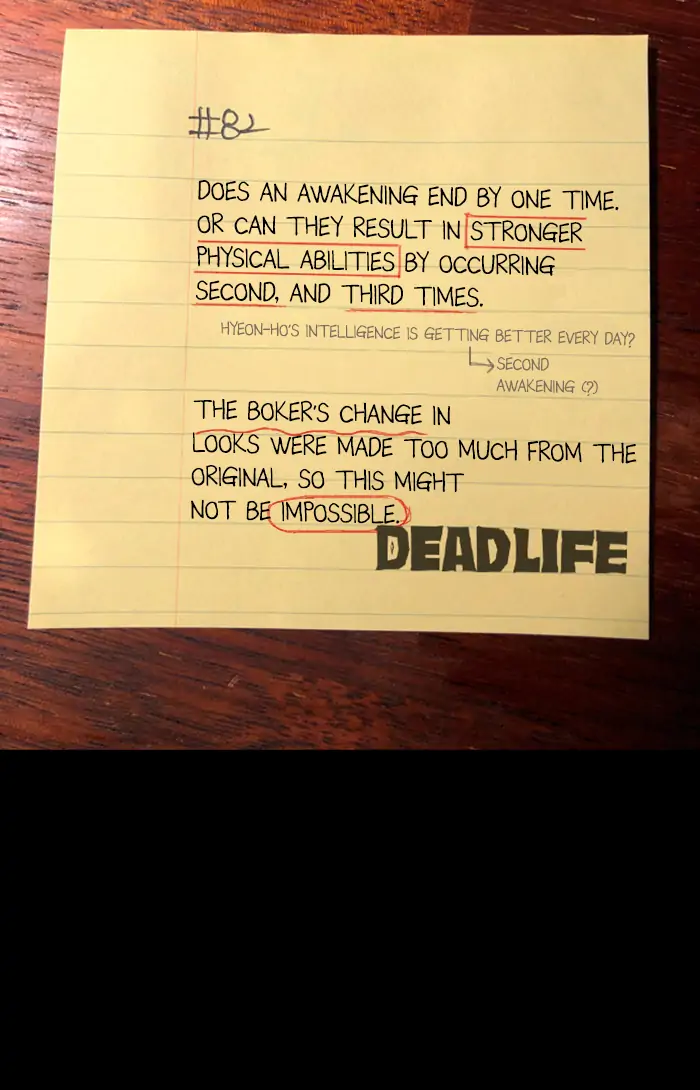 #82
DOES AN AWAKENING END BY ONE TIME.
OR CAN THEY RESULT IN STRONGER
PHYSICAL ABILITIES BY OCCURRING
SECOND, AND THIRD TIMES.
HYEON-HO'S INTELLIGENCE IS GETTING BETTER EVERY DAY?
SECOND
AWAKENING (?)
THE BOKER'S CHANGE IN
LOOKS WERE MADE TOO MUCH FROM THE
ORIGINAL, SO THIS MIGHT
NOT BE IMPOSSIBLE.
DEADLIFE